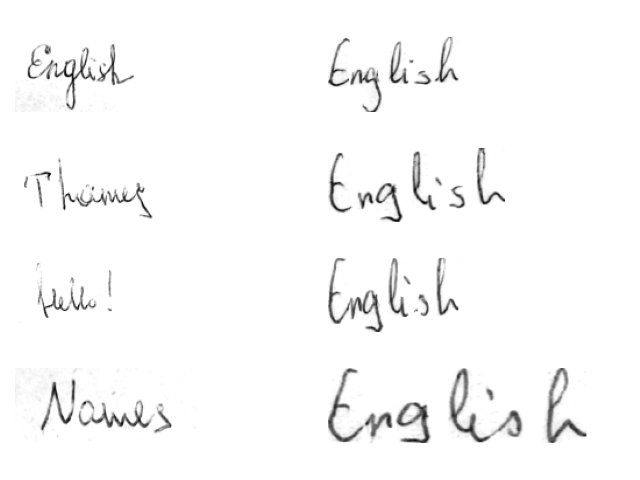 English English
Thames English
Hello! English
Names English